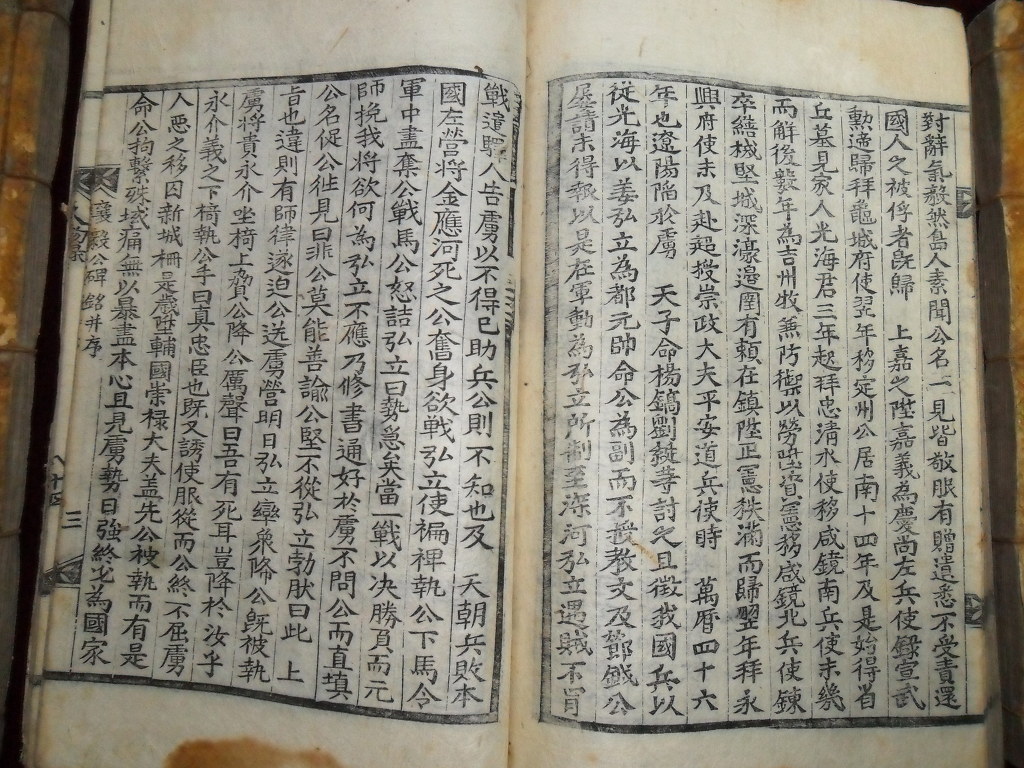 對辭氣毅然島人素聞公名一見皆敬服有贈遺悉不受責還
國人之被俘者旣歸　上嘉之陞嘉義爲慶尙左兵使錄宣武
勳選歸拜龜城府使翌年移定州公居南十四年及是始得省
丘墓見家人光海君三年起拜忠淸水使移咸鏡南兵使未幾
而解後數年爲吉州牧兼防禦以勞陞資憲移咸鏡北兵使鍊
卒繕械堅城深濠邊圉有賴在鎭陞正憲秩滿而歸翌年拜永
興府使未及赴超授崇政大夫平安道兵使時　萬曆四十六
年也遼陽陷於虜　天子命楊鎬劉綎等討之且徵我國兵以
從光海以姜弘立爲都元帥命公爲副而不授敎文及節鉞公
屢請未得報以是在軍動爲弘立所制至深河弘立遇賊不肯
戰遣驛人告虜以不得已助兵公則不知也及　天朝兵敗本
國左營將金應河死之公奮身欲戰弘立使褊裨執公下馬令
軍中盡奪公戰馬公怒詰弘立曰勢急矣當一戰以决勝負而元
師挽我將欲何爲弘立不應乃修書通好於虜不問公而直塡
公名促公徃見曰非公莫能善諭公堅不從弘立勃肰曰此　上
旨也違則有師律遂迫公送虜營明日弘立擧衆降公旣被執
虜將貴永介坐椅上賀公降公厲聲曰吾有死耳豈降於汝乎
永介義之下椅執公手曰眞忠臣也旣又誘使服從而公終不屈虜
人惡之移囚新城柵是歲陞輔國崇祿大夫盖先公被執而有是
命公拘縶殊域痛無以暴盡本心且見虜勢日強終必爲國家
襄毅公碑銘并序
三